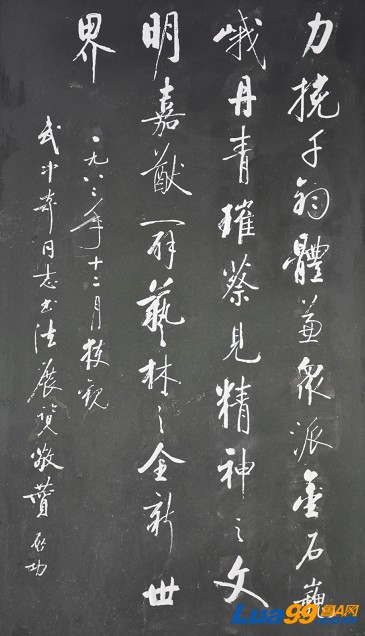 力挽千鈞體兼衆派金石巍
峨丹青璀粲見精神之文
明嘉猷一辟藝林之全新世
界
一九八三年十二月获观
武中奇同志书法展览敬贊 启功
Lua99
鲁A网